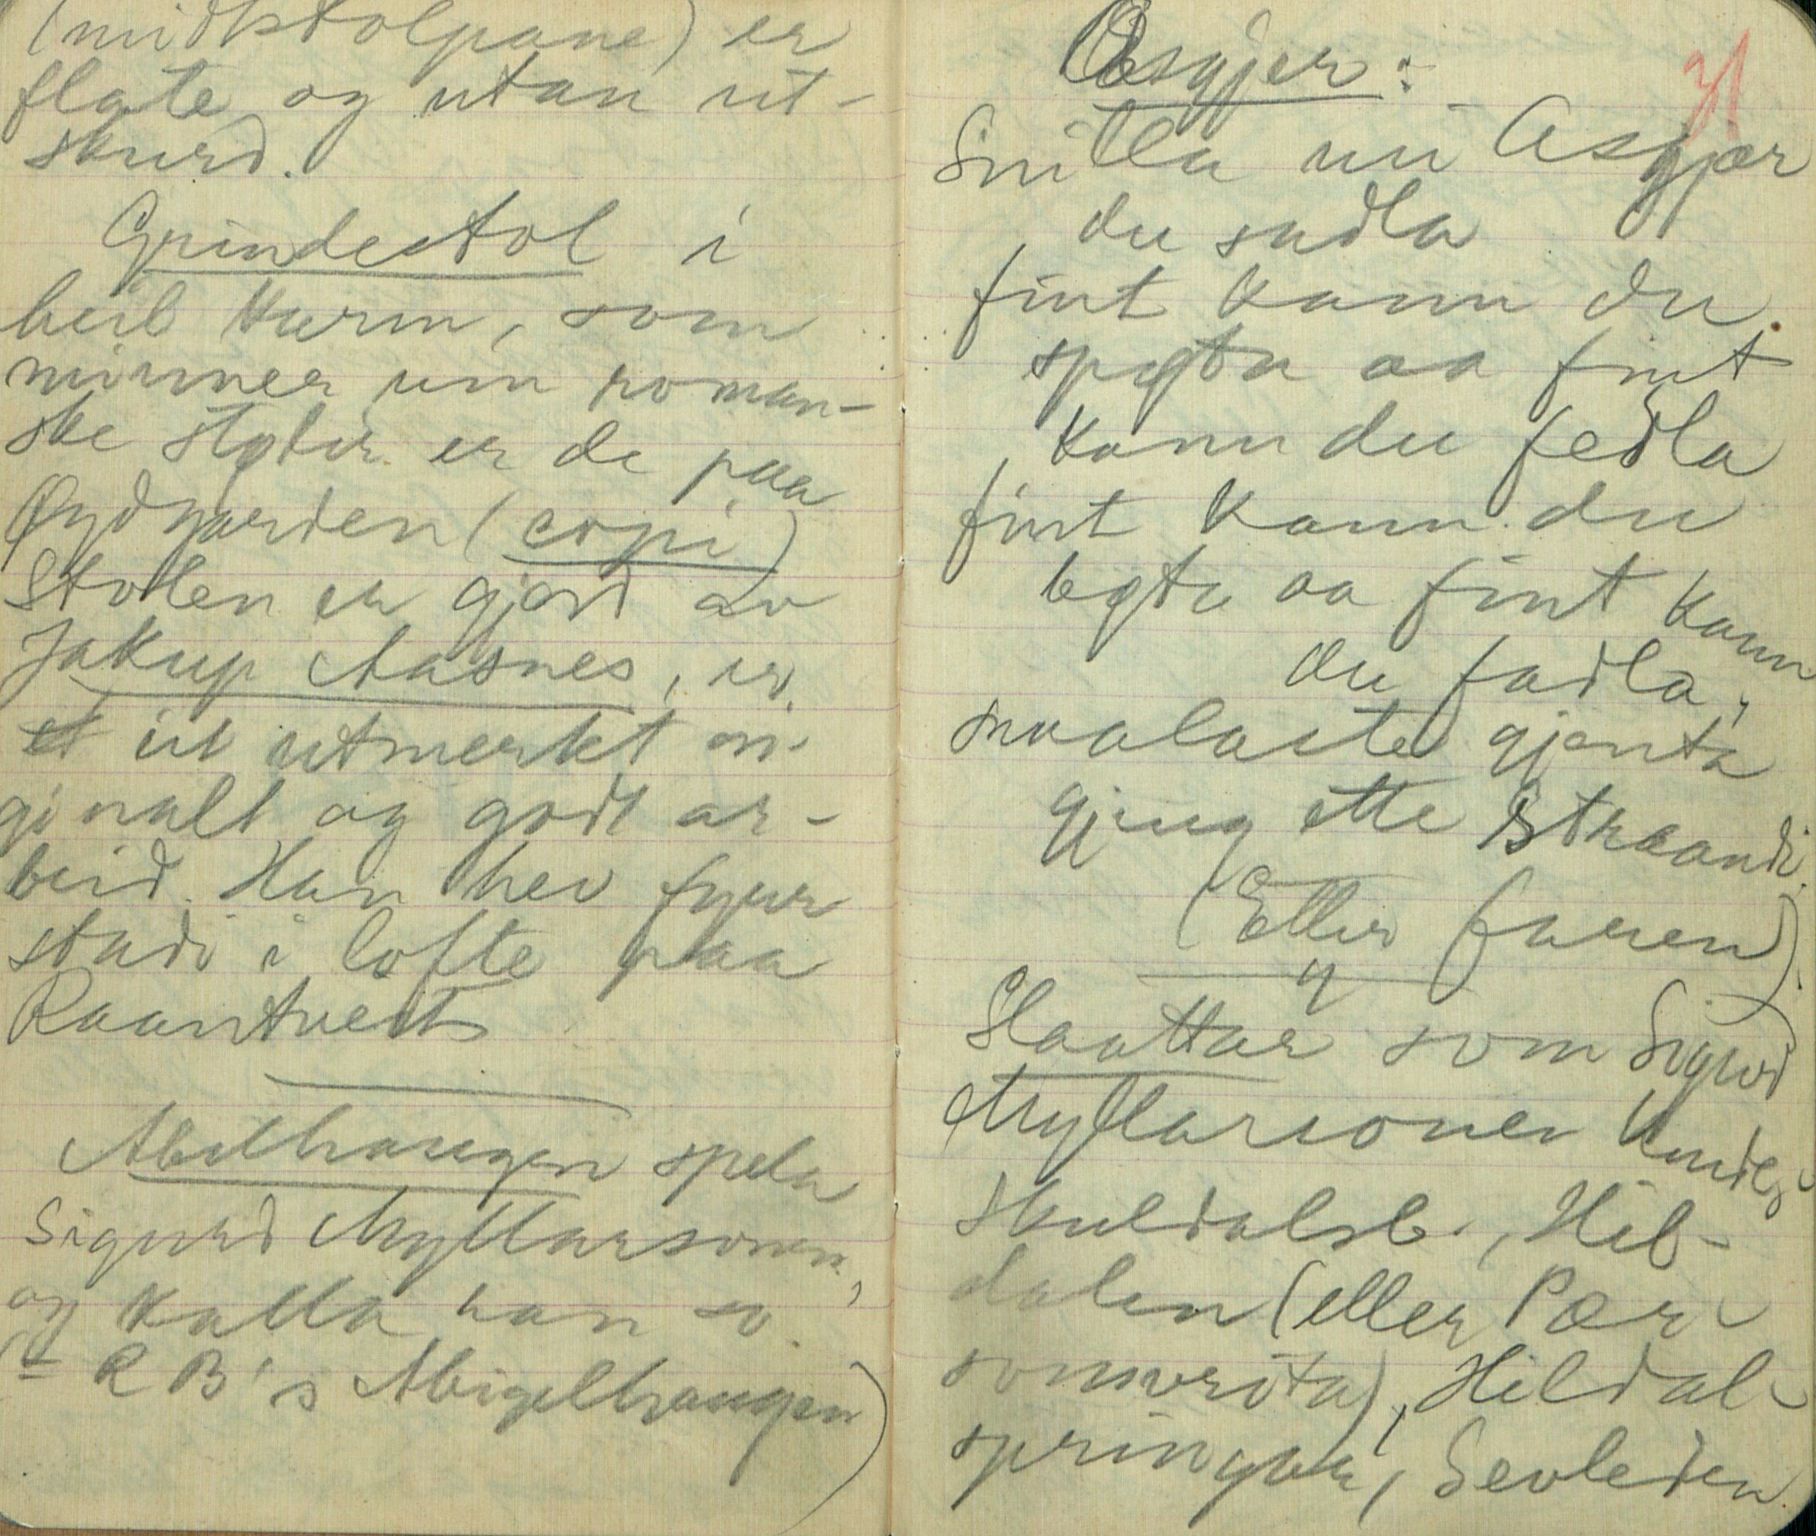 (midtstolpane) er
flate og utan ut-
skurd.
Grindestol i
heil karm, som
minner um roman-
ske stolar er de paa
Øydgarden (copi)
Stolen er gjort av
Jakup Aasnes, er
et eit utmerkt ori-
ginalt og godt ar-
beid. Han hev fyrr
stadi i lofte paa
Raantveit
Abelhaugen spela
Sigurd Myllarsonen,
og kalla han so
(= R B's Abigelhaugen)
31
Asgjer:
Snilla mi Asgjær
du sadla
fint kann du
spøta aa fint
kann du fedla
fint kann du
løta aa fint kann
du fadla,
smalaste gjenta
gjeng ette Straandi
(Eller faren)
Slaattar som Sigurd
Myllarsonen kunde,
Skuldalsb., Hil-
dalen (eller Pær-
), Hildal-
springar, Sevleden